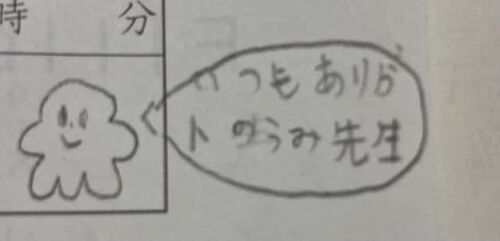 時 分
いつもありが
ト のうみ先生